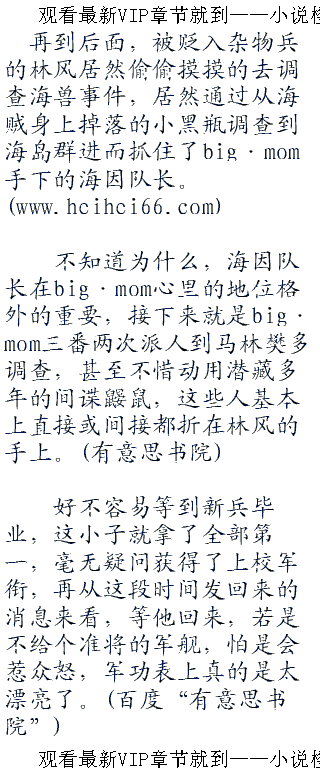 观看最新VIP章节就到——小说
再到后面，被贬入杂物兵
的林风居然偷偷摸摸的去调
查海兽事件，居然通过从海
贼身上掉落的小黑瓶调查到
海岛群进而抓住了big·mom
手下的海因队长。
(www.hcihci66.com)
不知道为什么，海因队
长在big·mom心里的地位格
外的重要，接下来就是big·
mom三番两次派人到马林樊多
调查，甚至不慌动用潜藏多
年的间谍鼹鼠，这些人基本
上直接或间接都折在林风的
手上。(有意思书院)
好不容易等到新兵毕
业，这小子就拿了全部第
一，毫无疑问获得了上校军
衔，再从这段时间发回来的
消息来看，等他回来，若是
不给个准将的军舰，怕是会
惹众怒，军功表上真的是太
漂亮了。(百度“有意思书
院”)
观看最新VIP章节就到——小说